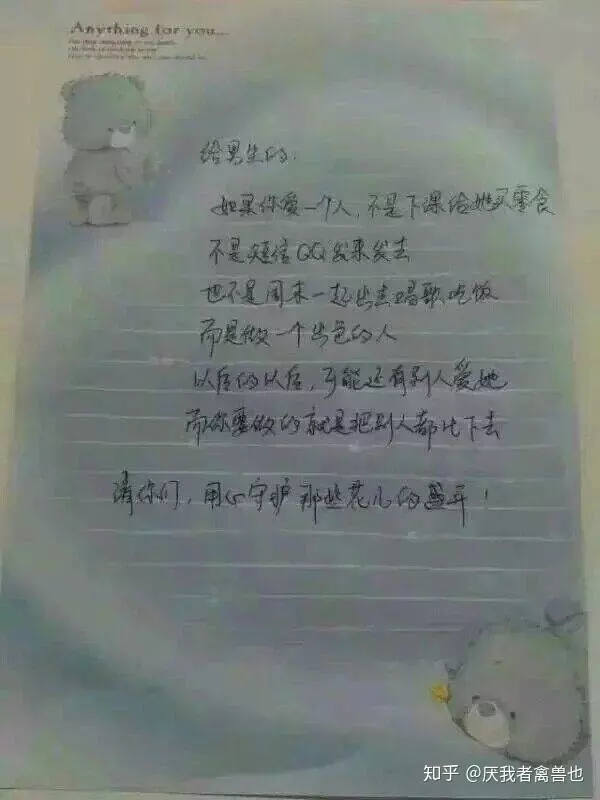 Anything for you...
给男生的:
如果你爱一个人,不是下课给她买零食
不是短信QQ发来发去
也不是周末一起出去唱歌吃饭
而是做一个出色的人
以后的以后,可能还有别人爱她
而你要做的就是把别人都比下去
请你们,用心守护那些花儿的盛开!
知乎 @厌我者禽兽也